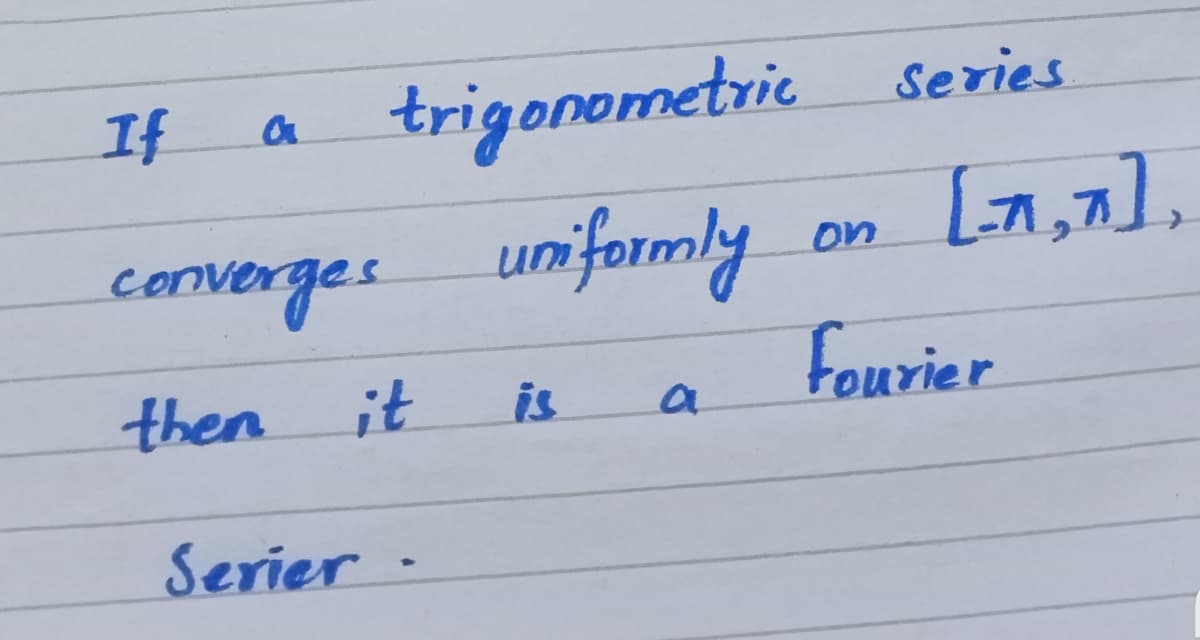 If a trigonometric series
converges uniformly on [-π,π],
then it is a Fourier
Serier.